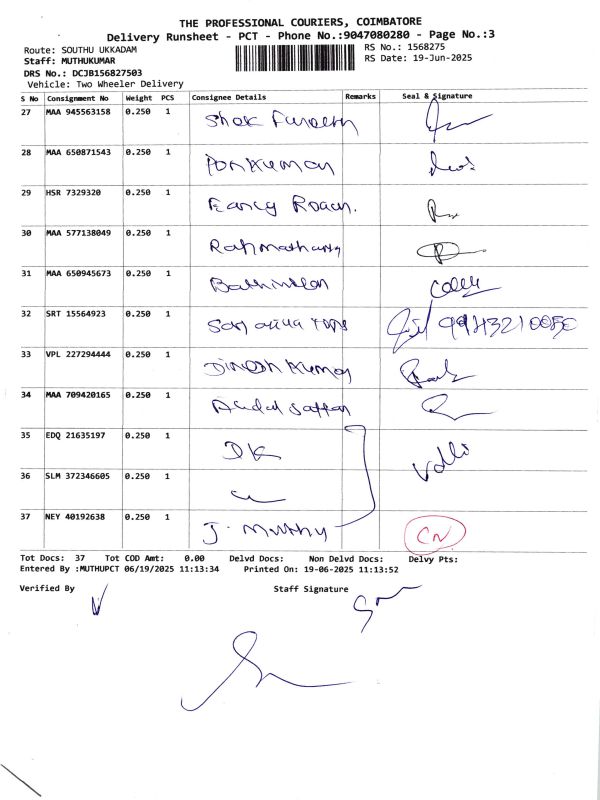 THE PROFESSIONAL COURIERS, COIMBATORE
Delivery Runsheet - PCT - Phone No.:9047080280 - Page No.:3
Route: SOUTHU UKKADAM
RS No.: 1568275
Staff: MUTHUKUMAR
RS Date: 19-Jun-2025
DRS No.: DCJB156827503
Vehicle: Two Wheeler Delivery
S No Consignment No Weight PCS Consignee Details Remarks Seal & Signature
27 MAA 945563158 0.250 1
28 MAA 650871543 0.250 1 Ponkumar
29 HSR 7329320 0.250 1 Fancy Roach.
30 MAA 577138049 0.250 1
31 MAA 650945673 0.250 1
32 SRT 15564923 0.250 1 9943210050
33 VPL 227294444 0.250 1 Dinesh Kumar
34 MAA 709420165 0.250 1
35 EDQ 21635197 0.250 1 DK Valli
36 SLM 372346605 0.250 1
37 NEY 40192638 0.250 1 J. Muthy CN
Tot Docs: 37 Tot COD Amt: 0.00 Delvd Docs: Non Delvd Docs: Delvy Pts:
Entered By :MUTHUPCT 06/19/2025 11:13:34 Printed On: 19-06-2025 11:13:52
Verified By Staff Signature